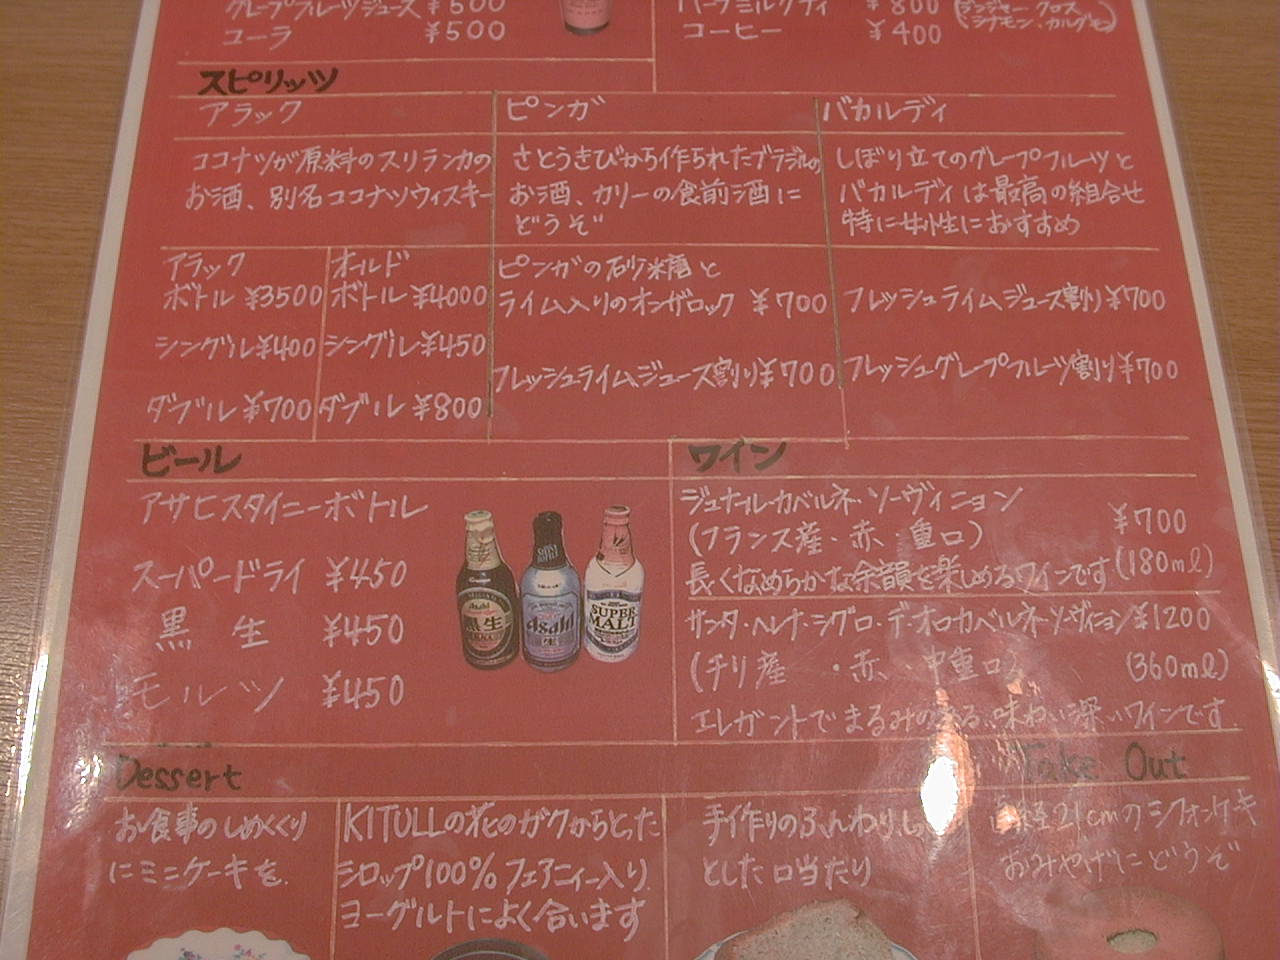 グレープフルーツジュース ¥500
コーラ ¥500
¥800 (ジンジャー・クローブ
シナモン・カルダモン)
コーヒー ¥400
スピリッツ
アラック
ココナツが原料のスリランカの
お酒、別名ココナツウィスキー
アラック
ボトル ¥3500
シングル ¥400
ダブル ¥700
オールド
ボトル ¥4000
シングル ¥450
ダブル ¥800
ピンガ
さとうきびから作られたブラジルの
お酒、カリーの食前酒に
どうぞ
ピンガの砂糖と
ライム入りのオンザロック ¥700
フレッシュライムジュース割り ¥700
バカルディ
しぼり立てのグレープフルーツと
バカルディは最高の組合せ
特に女性におすすめ
フレッシュライムジュース割り ¥700
フレッシュグレープフルーツ割り ¥700
ビール
アサヒスタイニーボトル
スーパードライ ¥450
黒生 ¥450
モルツ ¥450
Asahi
黒生
Asahi
生
SUPER
MALT
ワイン
ジュナル・カベルネ・ソーヴィニョン
¥700
(フランス産・赤・重口)
長くなめらかな余韻を楽しめるワインです (180ml)
サンタ・ヘレナ・シグロ・デ・オロカベルネ・ソーヴィニョン ¥1200
(チリ産・赤・中重口) (360ml)
エレガントでまるみのある、味わい深いワインです。
Dessert
お食事のしめくくり
にミニケーキを。
KITULLの花のガクからとった
シロップ100% フェアニィー入り
ヨーグルトによく合います
手作りのふんわりしっ
とした口当たり
Take Out
直径21cmのシフォンケーキ
おみやげにどうぞ